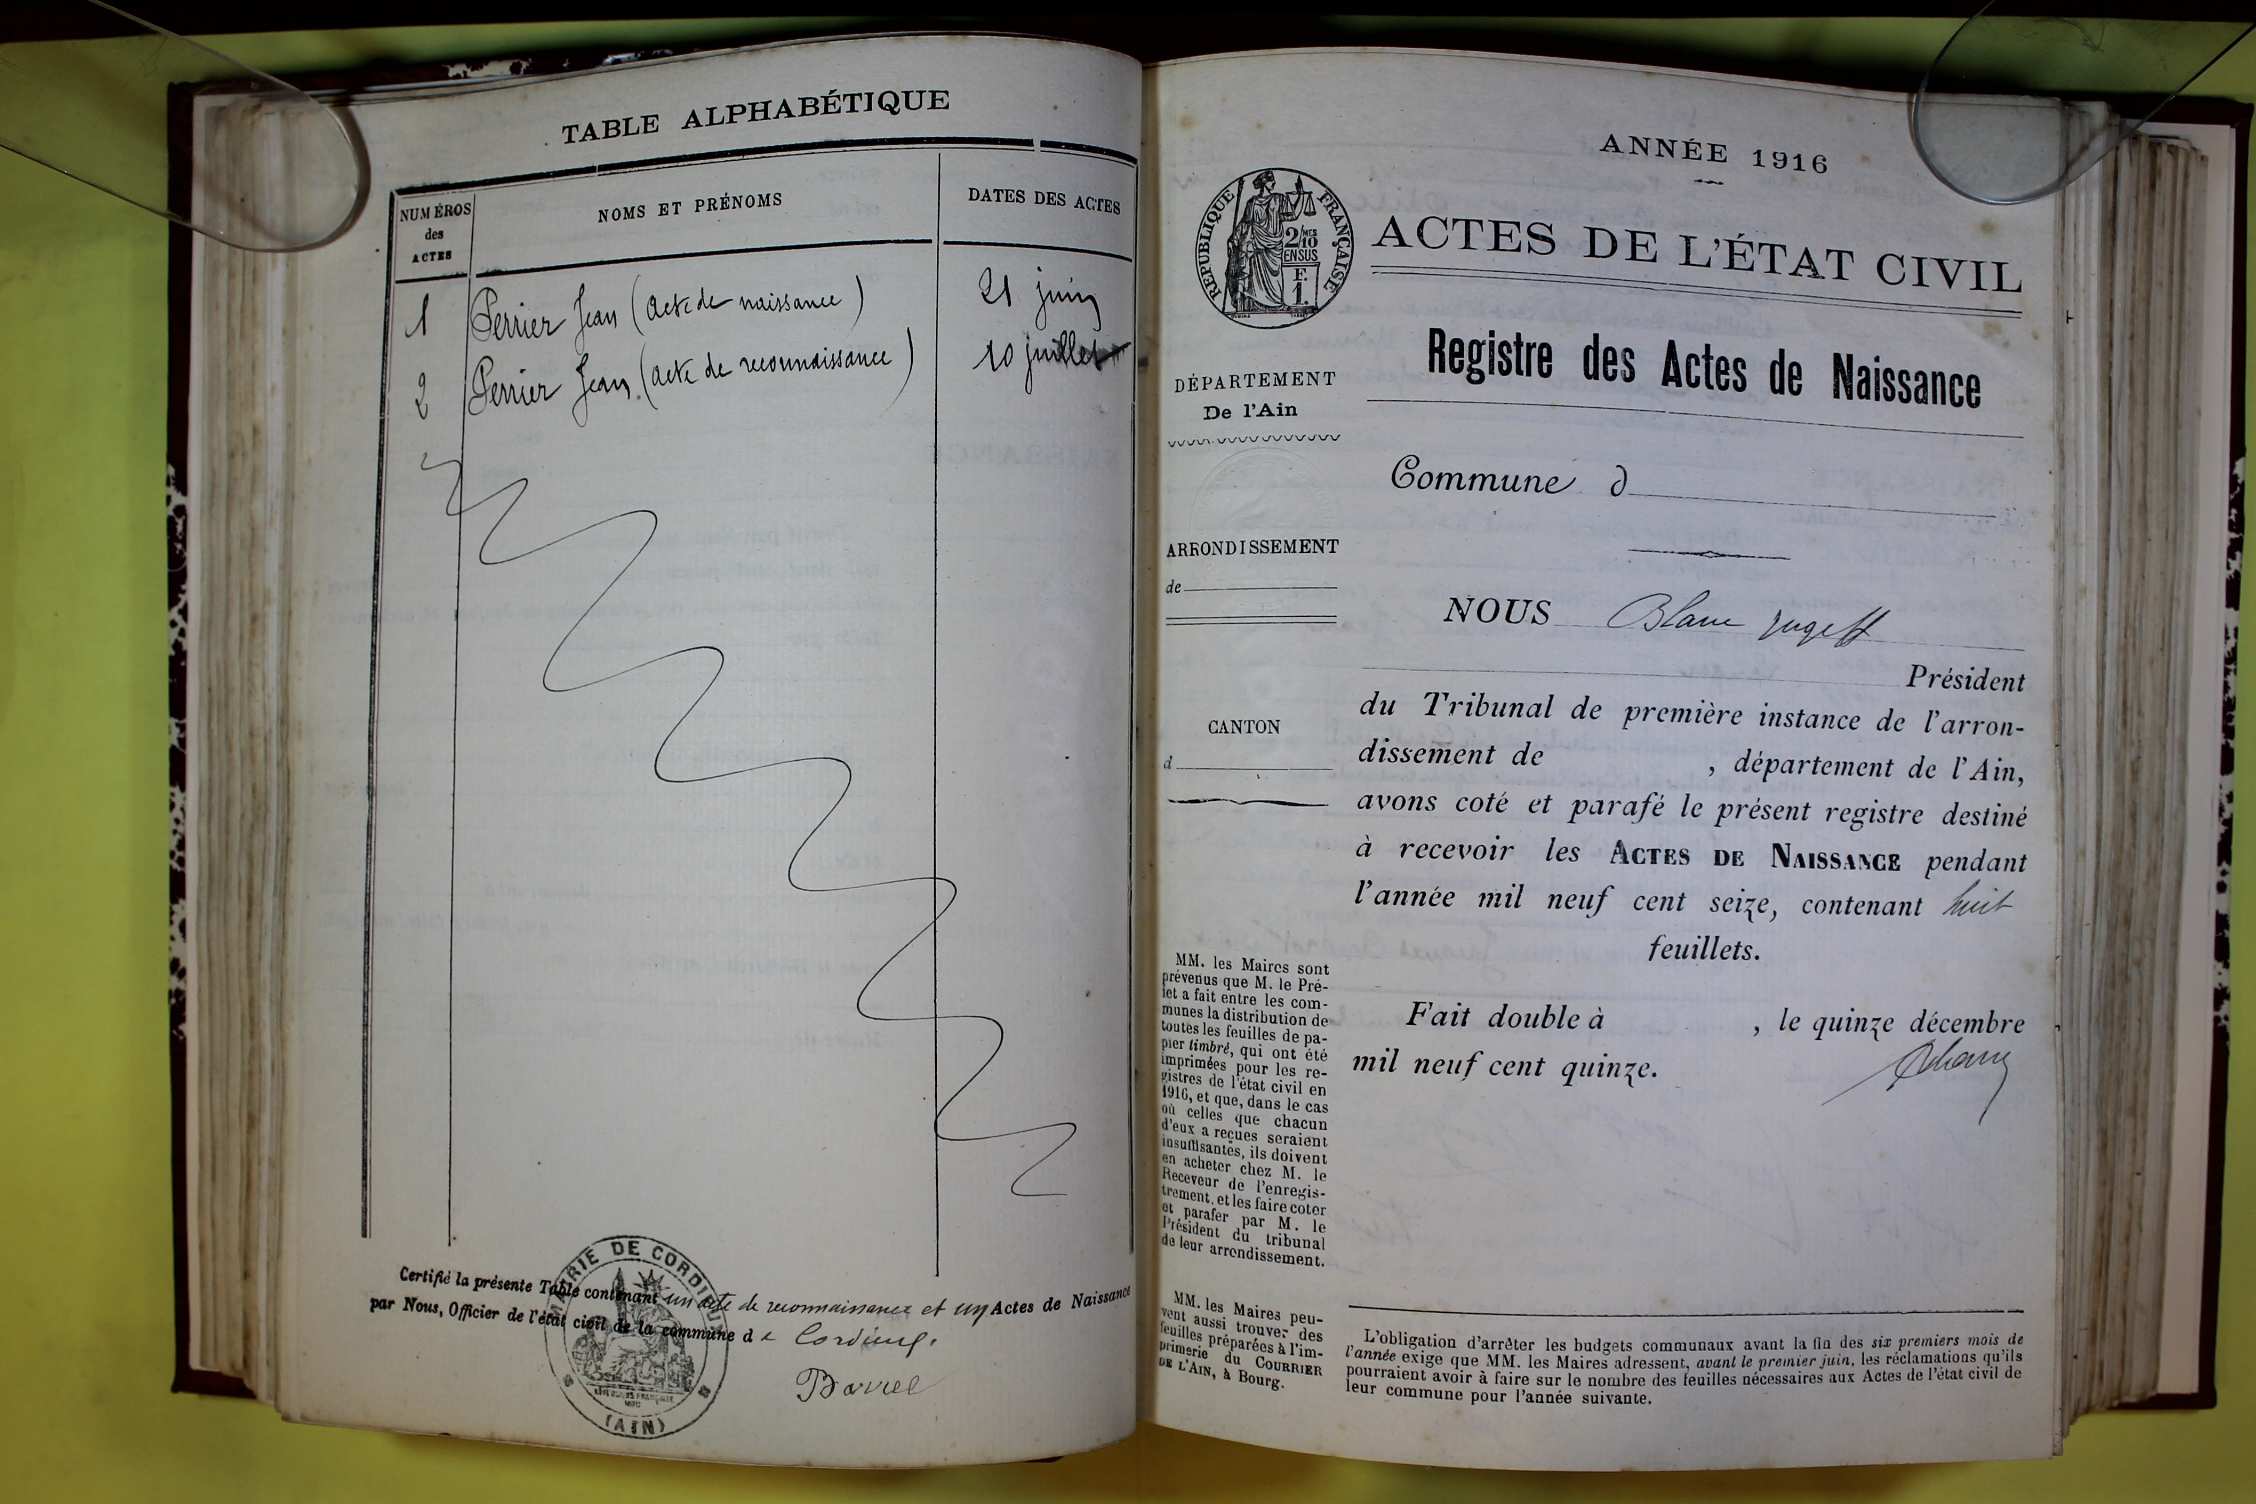 TABLE ALPHABÉTIQUE
NUMÉROS
des
ACTES
NOMS ET PRÉNOMS
DATES DES ACTES
1 Perrier Jean (acte de naissance) 21 juin
2 Perrier Jean (acte de reconnaissance) 10 juillet
MAIRIE DE CORDIEUX
(AIN)
Certifié la présente Table contenant un acte de reconnaissance et un Actes de Naissance
par Nous, Officier de l'état civil de la commune de Cordieux.
Barrel
ANNÉE 1916
RÉPUBLIQUE FRANÇAISE
2/10 MES
EN SUS
F
1.
ACTES DE L'ÉTAT CIVIL
Registre des Actes de Naissance
DÉPARTEMENT
De l'Ain
ARRONDISSEMENT
de
CANTON
d
MM. les Maires sont
prévenus que M. le Pré-
fet a fait entre les com-
munes la distribution de
toutes les feuilles de pa-
pier timbré, qui ont été
imprimées pour les re-
gistres de l'état civil en
1916, et que, dans le cas
où celles que chacun
d'eux a reçues seraient
insuffisantes, ils doivent
en acheter chez M. le
Receveur de l'enregis-
trement, et les faire coter
et parafer par M. le
Président du tribunal
de leur arrondissement.
MM. les Maires peu-
vent aussi trouver des
feuilles préparées à l'im-
primerie du COURRIER
DE L'AIN, à Bourg.
Commune d
NOUS
Président
du Tribunal de première instance de l'arron-
dissement de , département de l'Ain,
avons coté et parafé le présent registre destiné
à recevoir les ACTES DE NAISSANCE pendant
l'année mil neuf cent seize, contenant huit
feuillets.
Fait double à , le quinze décembre
mil neuf cent quinze.
L'obligation d'arrêter les budgets communaux avant la fin des six premiers mois de
l'année exige que MM. les Maires adressent, avant le premier juin, les réclamations qu'ils
pourraient avoir à faire sur le nombre des feuilles nécessaires aux Actes de l'état civil de
leur commune pour l'année suivante.